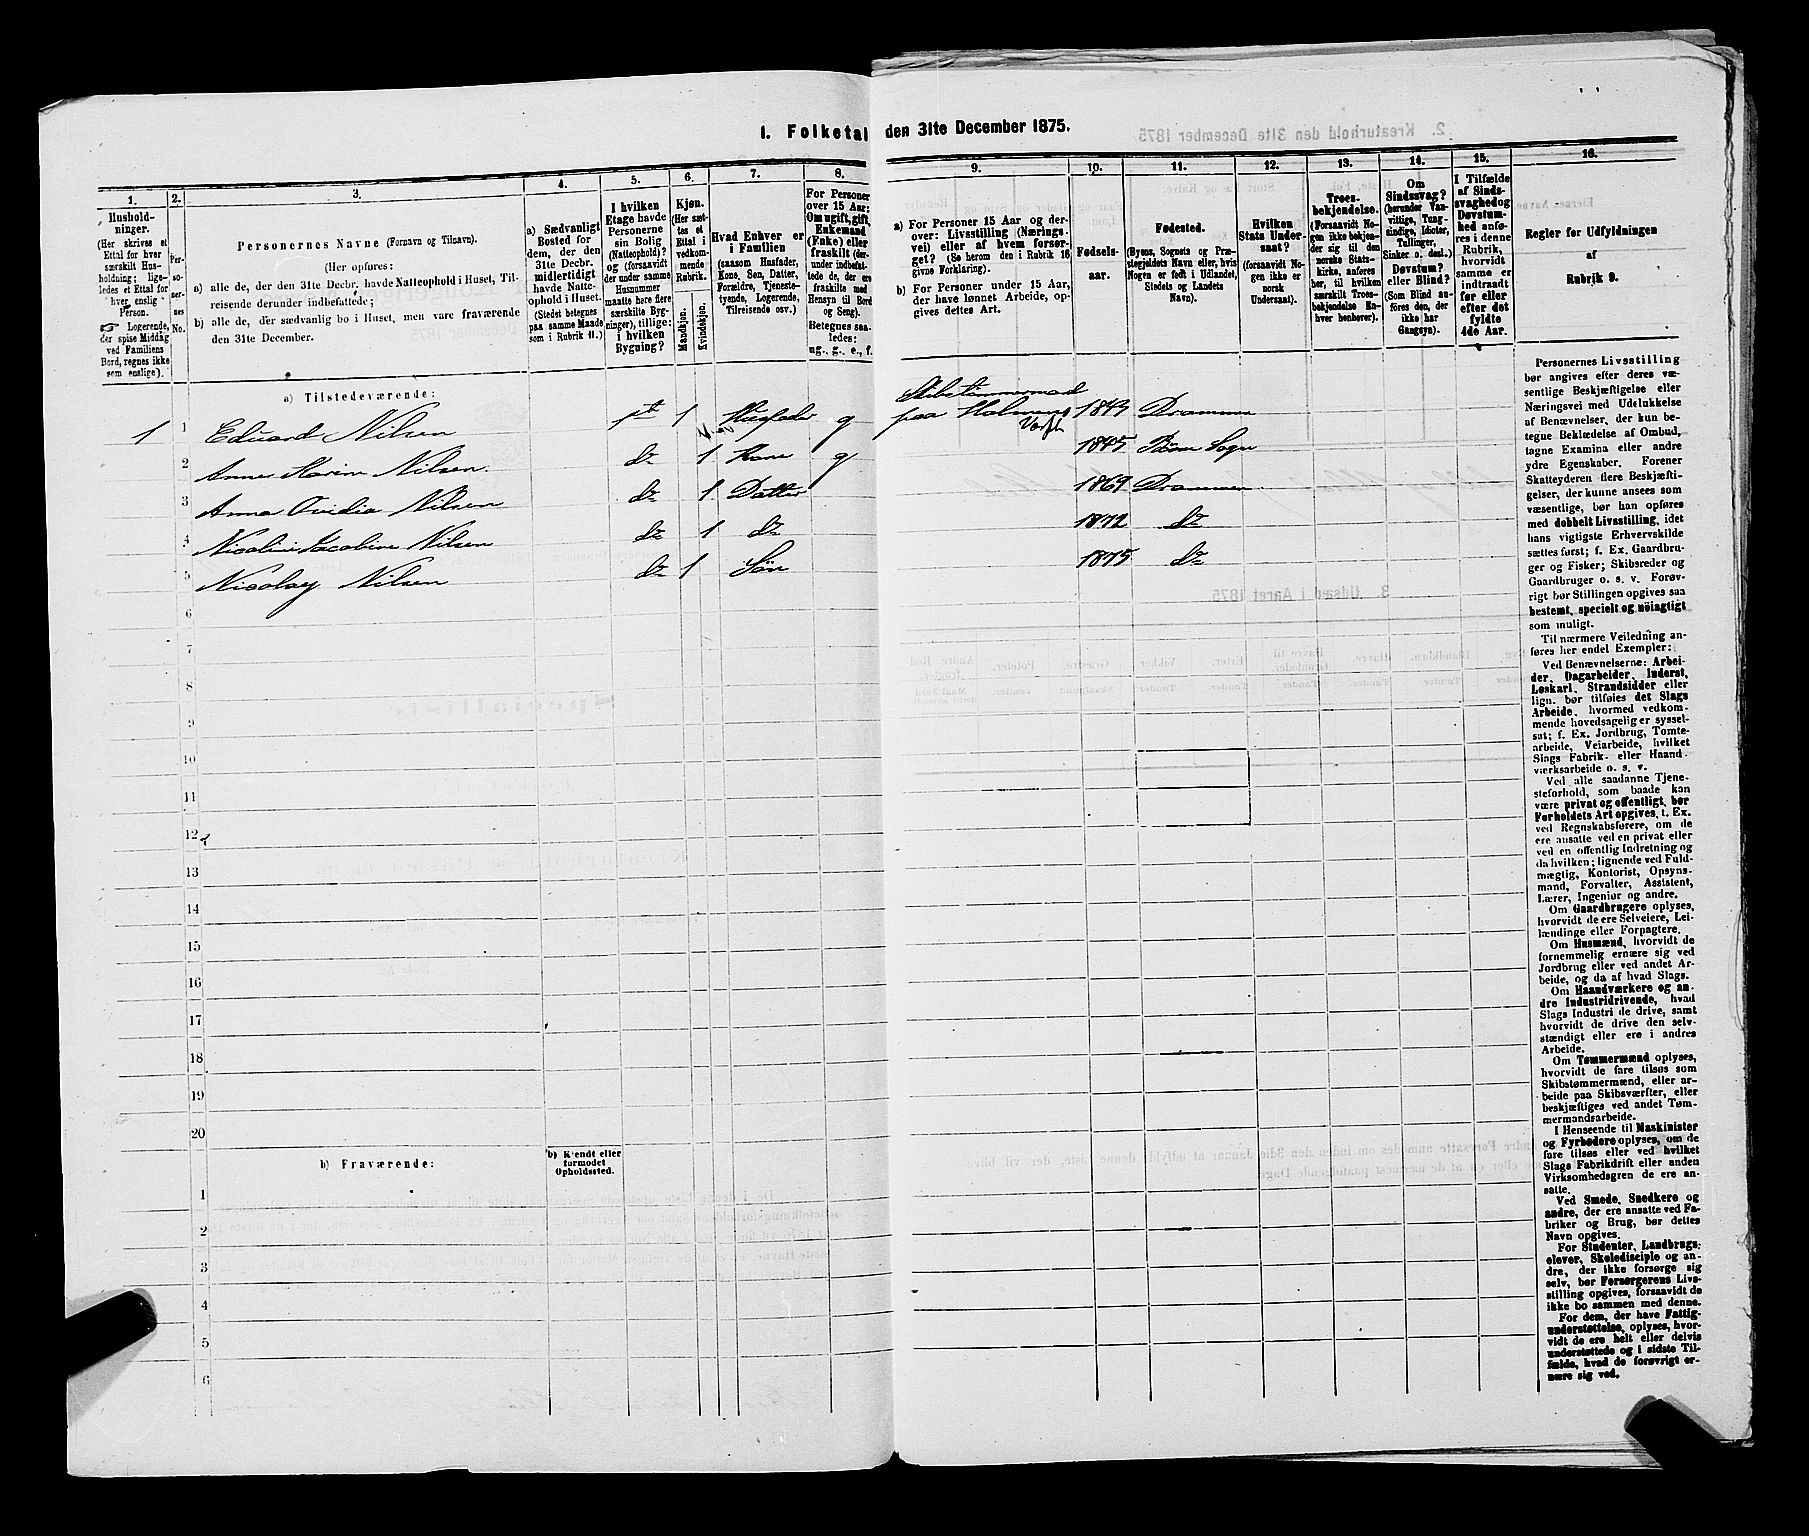 1. Folketal den 31te December 1875.
1. 2. 3. 4. 5. 6. 7. 8. 9. 10. 11. 12. 13. 14. 15. 16.
Hushold-
ninger.
(Her skrives et
Ettal for hver
særskilt Hus-
holdning; lige-
ledes et Ettal for
hver enslig
Person.
☞ Logerende,
der spise Middag
ved Familiens
Bord, regnes ikke
som enslige).
Per-
so-
ner-
nes
No.
Personernes Navne (Fornavn og Tilnavn).
(Her opføres:
a) alle de, der den 31te Decbr. havde Natteophold i Huset, Til-
reisende derunder indbefattede;
b) alle de, der sædvanlig bo i Huset, men vare fraværende
den 31te December.
a) Sædvanligt
Bosted for
dem, der den
31te Decbr.
midlertidigt
havde Natte-
ophold i Huset.
(Stedet betegnes
paa samme Maade
som i Rubrik 11.)
I hvilken
Etage havde
Personerne
sin Bolig
(Natteophold)?
og (forsaavidt
der under samme
Husnummer
maatte høre flere
særskilte Byg-
ninger), tillige:
i hvilken
Bygning?
Kjøn.
(Her sæt-
tes et
Ettal i
vedkom-
mende
Rubrik.
Mandkjøn.
Kvindekjøn.
Hvad Enhver er
i Familien
(saasom Husfader,
Kone, Søn, Datter,
Forældre, Tjeneste-
tyende, Logerende,
Tilreisende osv.)
For Personer
over 15 Aar:
Om ugift, gift,
Enkemand
(Enke) eller
fraskilt (der-
under indbefat-
tede de, der ere
fraskilte med
Hensyn til Bord
og Seng).
Betegnes saa-
ledes:
ug., g., e., f.
a) For Personer 15 Aar og der-
over: Livsstilling (Nærings-
vei) eller af hvem forsør-
get? (Se herom den i Rubrik 16
givne Forklaring).
b) For Personer under 15 Aar,
der have lønnet Arbeide, op-
gives dettes Art.
Fødsels-
aar.
Fødested.
(Byens, Sognets og Præ-
stegjeldets Navn eller, hvis
Nogen er født i Udlandet,
Stedets og Landets
Navn).
Hvilken
Stats Under-
saat?
(forsaavidt No-
gen ikke er
norsk
Undersaat).
Troes-
bekjendelse.
(Forsaavidt No-
gen ikke bekjen-
der sig til den
norske Stats-
kirke, anføres
her, til hvilken
særskilt Troes-
bekjendelse En-
hver henhører).
Om
Sindssvag?
(herunder Van-
vittige, Tung-
sindige, Idioter,
Tullinger,
Sinker o. desl.).
Døvstum?
eller Blind?
(Som Blind an-
føres den, der
ikke har
Gangsyn).
I Tilfælde
af Sinds-
svaghed og
Døvstum-
hed anfø-
res i denne
Rubrik,
hvorvidt
samme er
indtraadt
før eller
efter det
fyldte
4de Aar.
Regler for Udfyldningen
af
Rubrik 9.
a) Tilstedeværende:
1 1 Eduard Nilsen 1st 1 Husfader g Skibstømmermad paa Holmens Værft 1843 Drammen
2 Anne Karine Nilsen do 1 Kone g 1845 Sogn
3 Anna Ovidia Nilsen do 1 Datter 1869 Drammen
4 Nicoline Jacobine Nilsen do 1 do 1872 do
5 Nicolay Nilsen do 1 Søn 1875 do
6
7
8
9
10
11
12
13
14
15
16
17
18
19
20
b) Fraværende:
b) Kjendt eller
formodet
Opholdssted.
1
2
3
4
5
6
Personernes Livsstilling
bør angives efter deres væ-
sentlige Beskjæftigelse eller
Næringsvei med Udelukkelse
af Benævnelser, der kun be-
tegne Beklædelse af Ombud,
tagne Examina eller andre
ydre Egenskaber. Forener
Skatteyderen flere Beskjæfti-
gelser, der kunne ansees som
væsentlige, bør han opføres
med dobbelt Livsstilling, idet
hans vigtigste Erhvervskilde
sættes først; f. Ex. Gaardbru-
ger og Fisker; Skibsreder og
Gaardbruger o. s. v. Forøv-
rigt bør Stillingen opgives saa
bestemt, specielt og nöiagtigt
som muligt.
Til nærmere Veiledning an-
føres her endel Exempler:
Ved Benævnelserne: Arbei-
der, Dagarbeider, Inderst,
Løskarl, Strandsidder eller
lign. bør tilføies det Slags
Arbeide, hvormed vedkom-
mende hovedsagelig er syssel-
sat; f. Ex. Jordbrug, Tomte-
arbeide, Veiarbeide, hvilket
Slags Fabrik- eller Haand-
værksarbeide o. s. v.
Ved alle saadanne Tjene-
steforhold, som baade kan
være privat og offentligt, bør
Forholdets Art opgives, t. Ex.
ved Regnskabsførere, om de
ere ansatte ved en privat eller
ved en offentlig Indretning og
da hvilken; lignende ved Fuld-
mægtig, Kontorist, Opsyns-
mand, Forvalter, Assistent,
Lærer, Ingeniør og andre.
Om Gaardbrugere oplyses,
hvorvidt de ere Selveiere, Lei-
lændinge eller Forpagtere.
Om Husmænd, hvorvidt de
fornemmelig ernære sig ved
Jordbrug eller ved andet Ar-
beide, og da af hvad Slags.
Om Haandværkere og an-
dre Industridrivende, hvad
Slags Industri de drive, samt
hvorvidt de drive den selv-
stændigt eller ere i andres
Arbeide.
Om Tømmermænd oplyses,
hvorvidt de fare tilsøs som
Skibstømmermænd, eller ar-
beide paa Skibsværfter, eller
beskjæftiges ved andet Tøm-
mermandsarbeide.
I Henseende til Maskinister
og Fyrbødere oplyses, om de
fare tilsøs eller ved hvilket
Slags Fabrikdrift eller anden
Virksomhedsgren de ere an-
satte.
Ved Smede, Snedkere og
andre, der ere ansatte ved Fa-
briker og Brug, bør dettes
Navn opgives.
For Studenter, Landbrugs-
elever, Skoledisciple og an-
dre, der ikke forsørge sig
selv, bør Forsørgerens Livs-
stilling opgives, forsaavidt de
ikke bo sammen med denne.
For dem, der have Fattig-
understøttelse, oplyses, hvor-
vidt de ere helt eller delvis
understøttede og i sidste Til-
fælde, hvad de forøvrigt er-
nære sig ved.